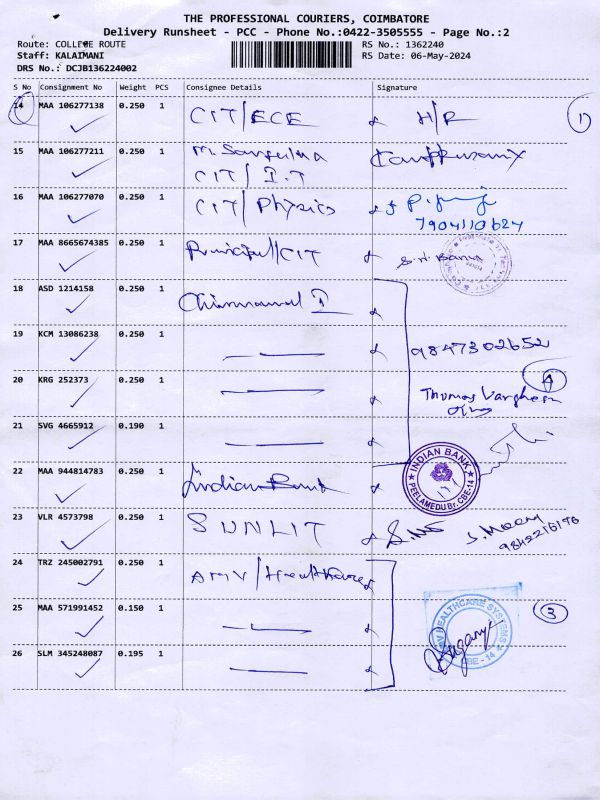 THE PROFESSIONAL COURIERS, COIMBATORE
Delivery Runsheet - PCC - Phone No.:0422-3505555 - Page No.:2
Route: COLLEGE ROUTE RS No.: 1362240
Staff: KALAIMANI RS Date: 06-May-2024
DRS No.: DCJB136224002
S No Consignment No Weight PCS Consignee Details Signature
14 MAA 106277138 0.250 1 CIT/ECE H/R 1
15 MAA 106277211 0.250 1
CIT/I.T
16 MAA 106277070 0.250 1 CIT/Physics
7904110624
17 MAA 8665674385 0.250 1 Principal/CIT
18 ASD 1214158 0.250 1
19 KCM 13086238 0.250 1 9847302652
20 KRG 252373 0.250 1 4
Thomas Varghese
21 SVG 4665912 0.190 1
22 MAA 944814783 0.250 1 Indian Bank
INDIAN BANK
PEELAMEDU Br. CBE-14
23 VLR 4573798 0.250 1 SUNLIT
24 TRZ 245002791 0.250 1 AMV/Healthcare
25 MAA 571991452 0.150 1 3
HEALTHCARE SYSTEMS
CBE-14
26 SLM 345248087 0.195 1